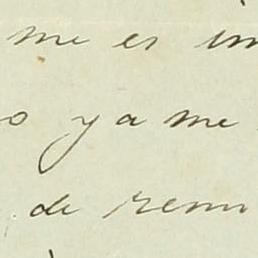 me es im
o ya me
de remi